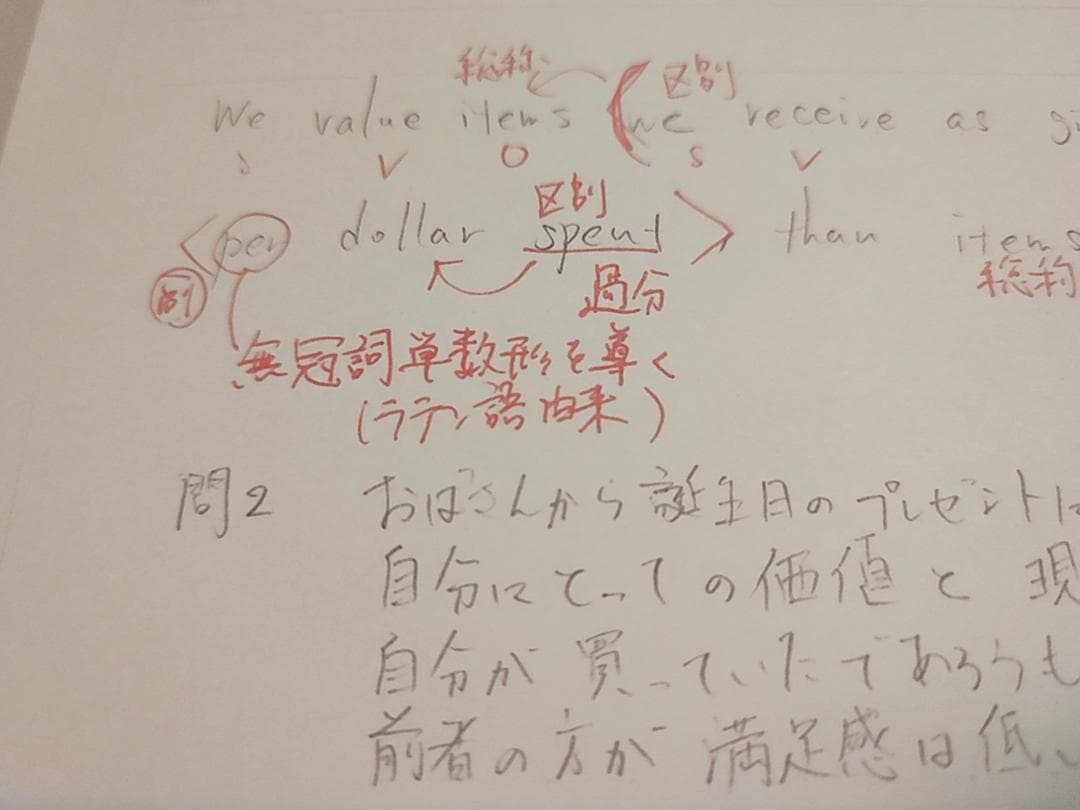 総称 区別
We value items (we receive as gi
S V O S V
区別
<per dollar spent> than items
副 過分 総称
無冠詞単数形を導く
(ラテン語由来)
問2 おばさんから誕生日のプレゼントは
自分にとっての価値と現
自分が買っていたであろうも
前者の方が満足感は低い